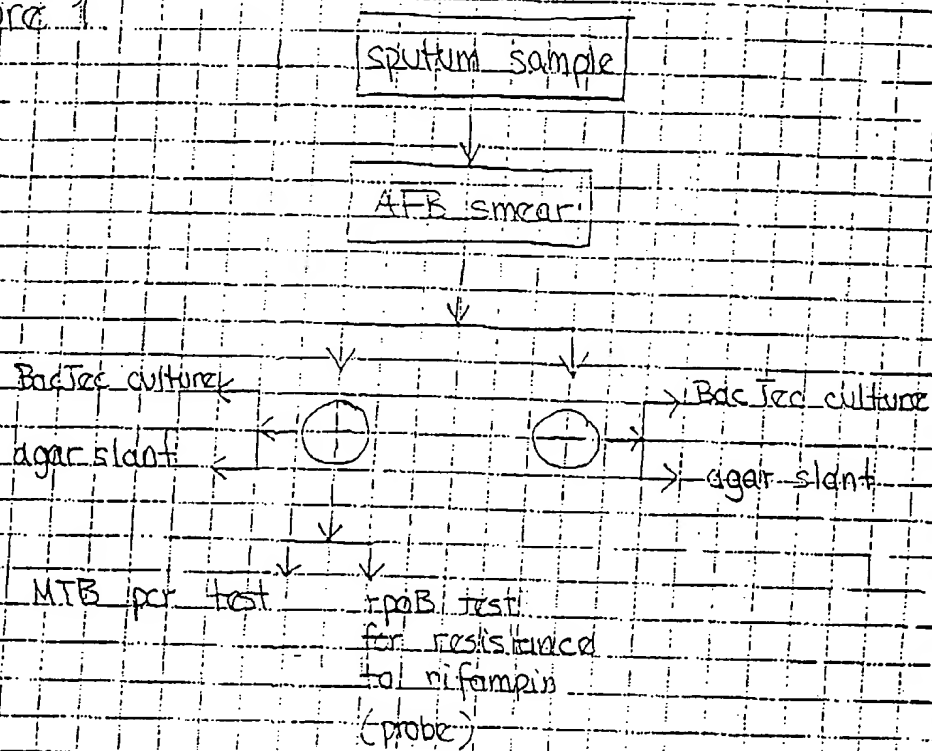 sputum sample
AFB smear
BacTec culture
agar slant
+
−
BacTec culture
agar slant
MTB pcr test
rpoB test
for resistance
to rifampin
(probe)